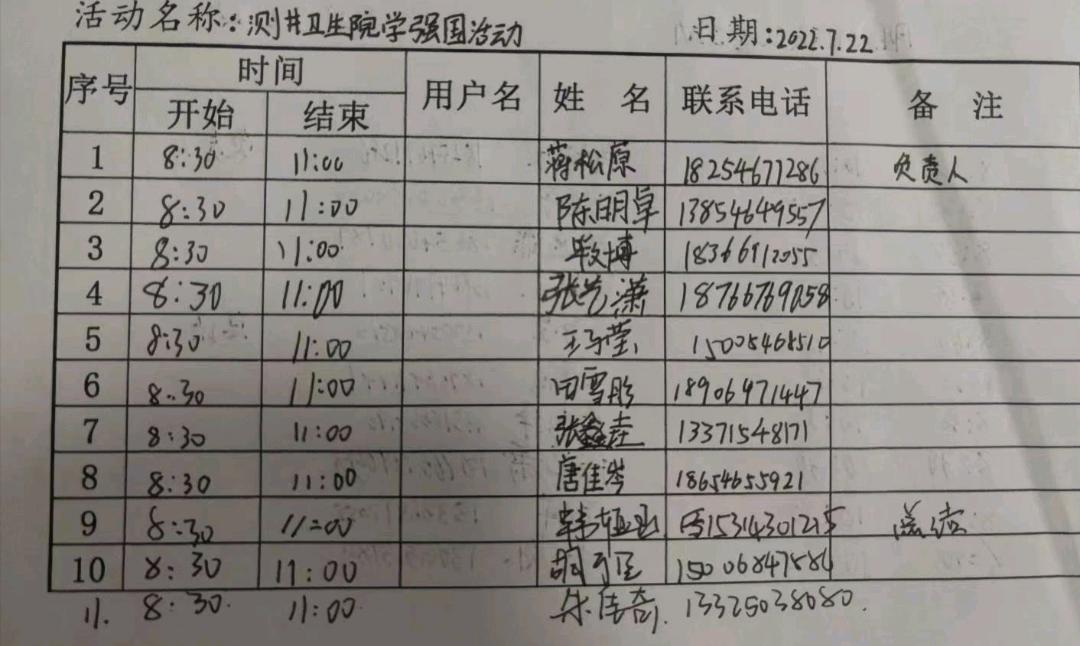 活动名称:测井卫生院学强国活动 日期:2022.7.22
序号 时间 用户名 姓 名 联系电话 备 注
开始 结束
1 8:30 11:00 蒋松原 18254671286 负责人
2 8:30 11:00 陈明卓 13854649557
3 8:30 11:00 18366912055
4 8:30 11:00 张艺潇 18766769058
5 8:30 11:00 王子莹 15005468510
6 8:30 11:00 田雪彤 18906471447
7 8:30 11:00 张鑫垚 13371548171
8 8:30 11:00 唐佳岑 18654655921
9 8:30 11:00 韩 15314301215 总结
10 8:30 11:00 胡 15006847586
11. 8:30. 11:00. 朱传奇. 13325038080.